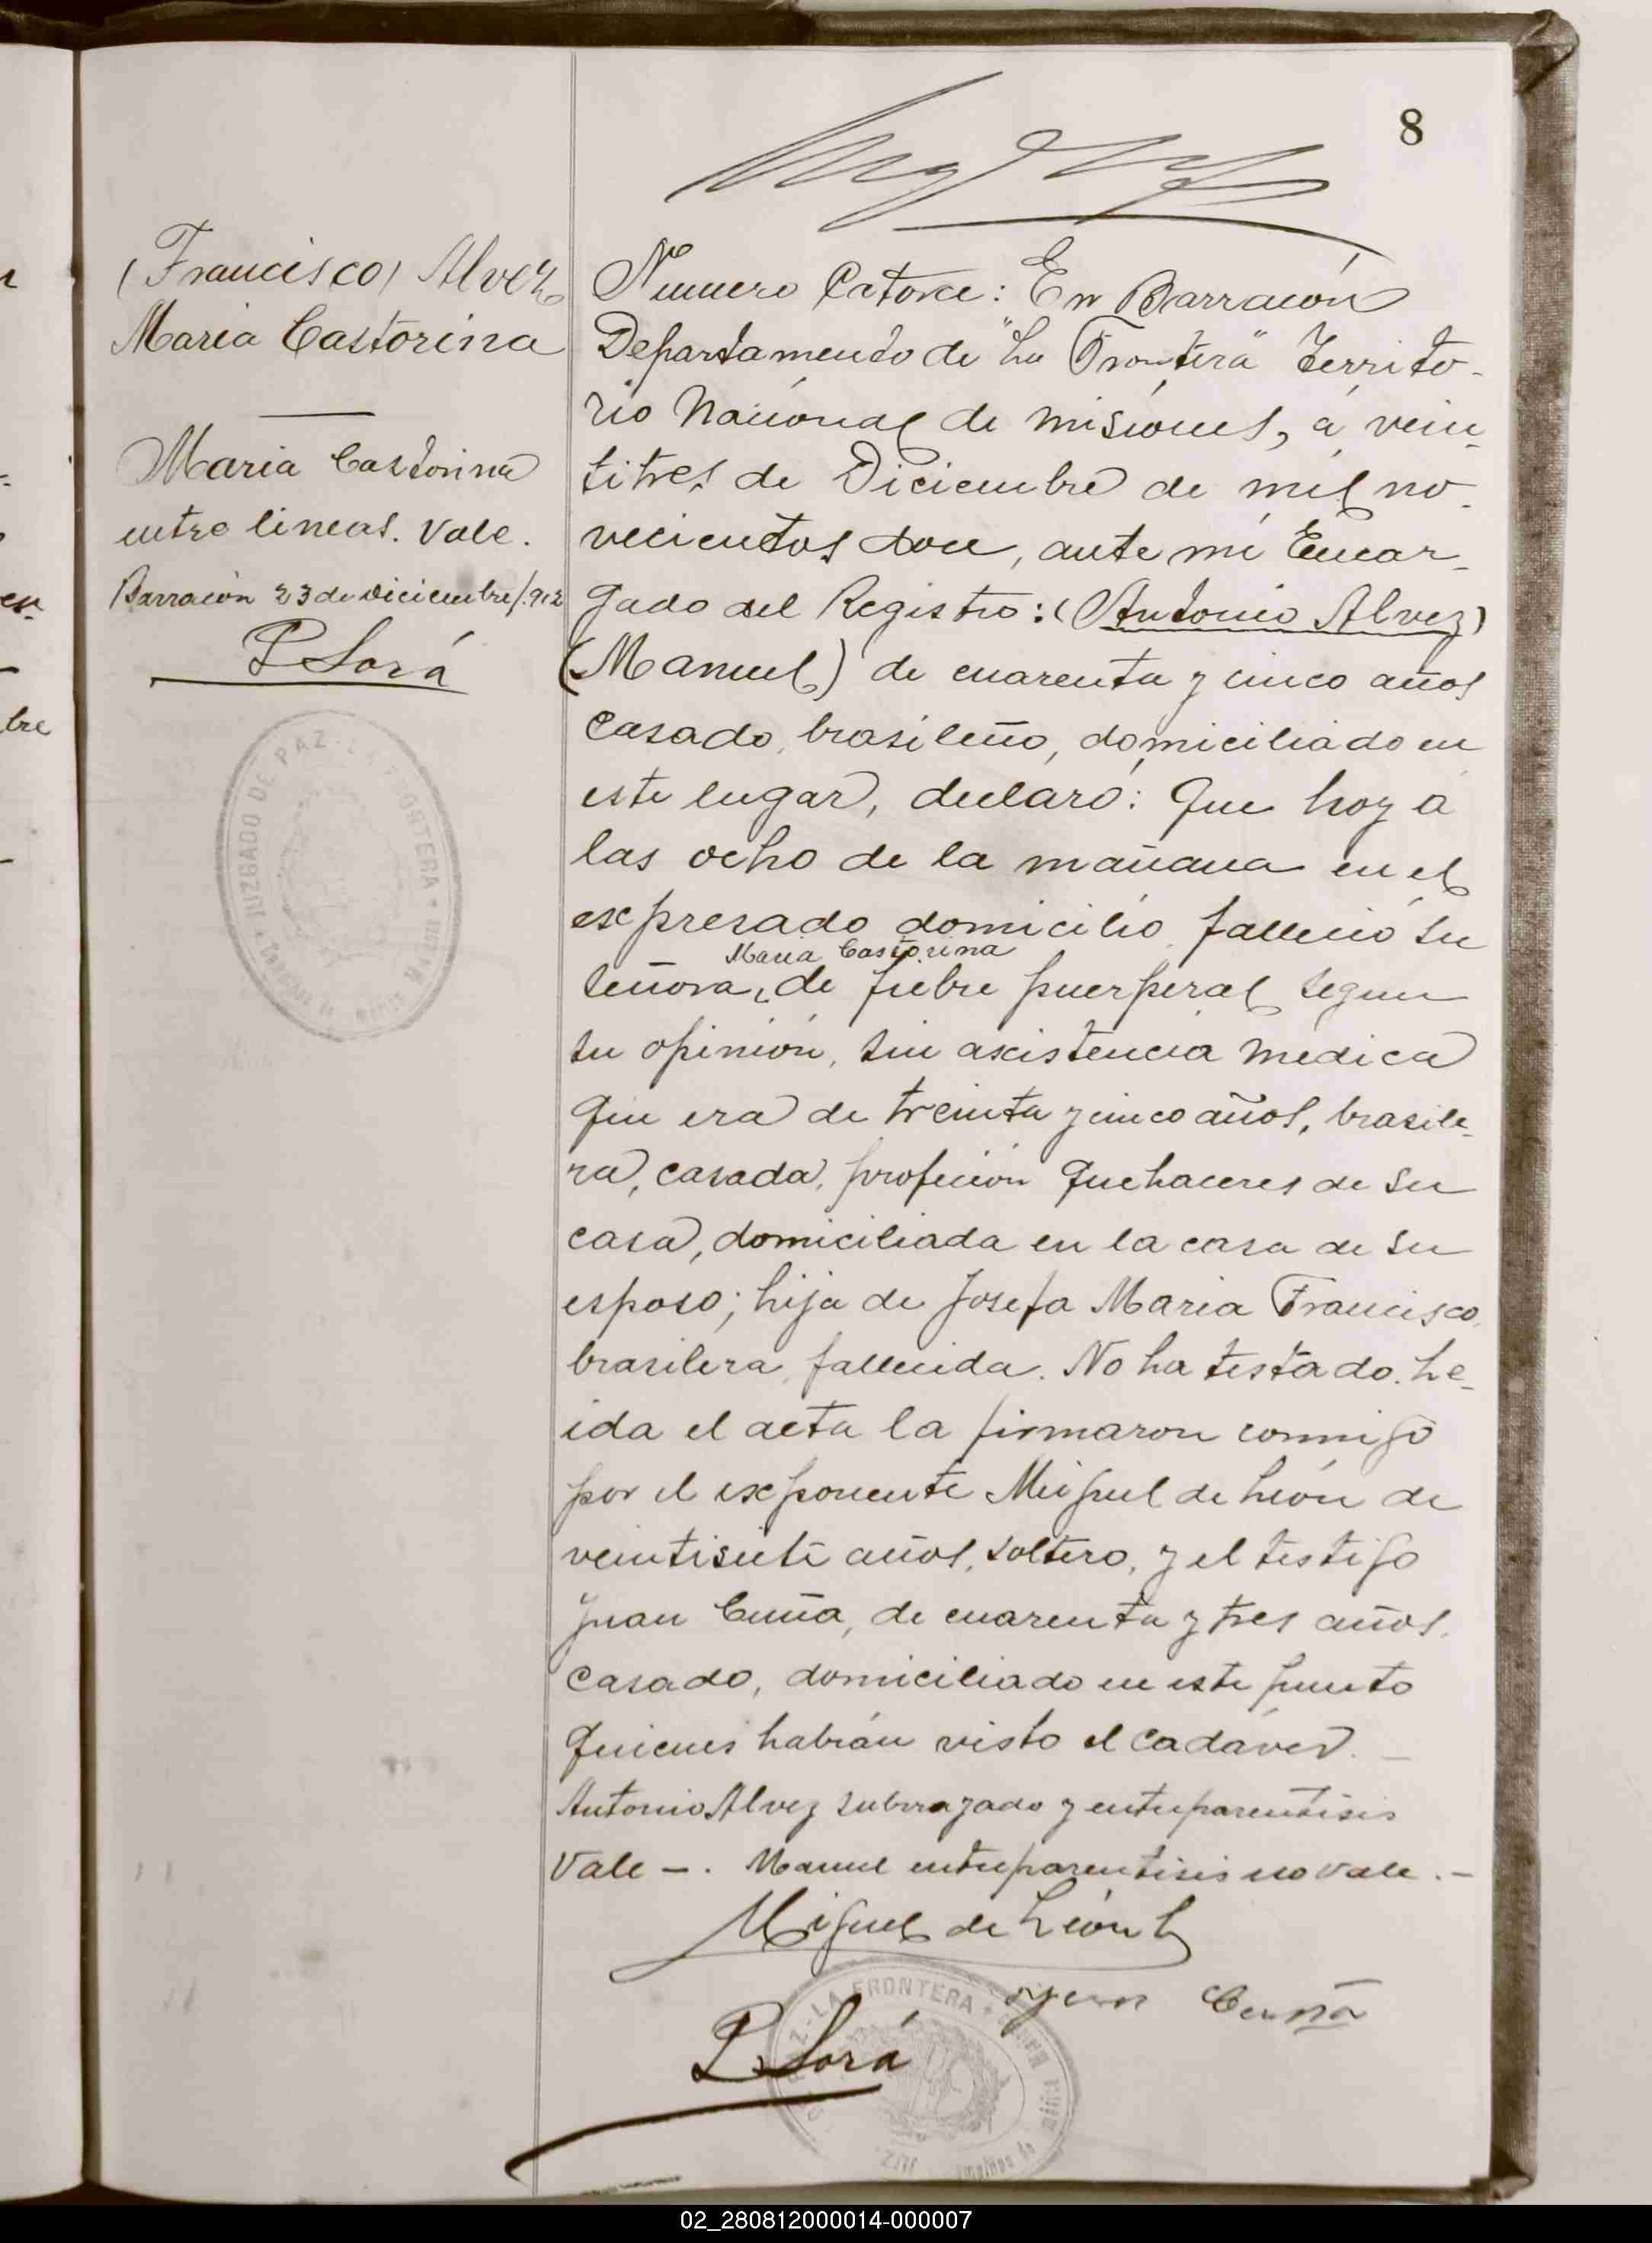 8
(Francisco) Alvez
Maria Castorina
Maria Castorina
entre lineas. Vale.
Barracón 23 de Diciembre/.912
P Lorá
JUZGADO DE PAZ - LA FRONTERA
Numero Catorce: En Barracón
Departamento de "La Frontera" Territo-
rio Nacional de Misiones, á vein-
titres de Diciembre de mil no-
vecientos doce, ante mi Encar-
gado del Registro: (Antonio Alvez)
(Manuel) de cuarenta y cinco años
casado, brasileño, domiciliado en
este lugar, declaró: Que hoy á
las ocho de la mañana en el
expresado domicilio falleció su
Maria Castorina
señora, de fiebre puerperal segun
su opinión, sin axistencia medica
que era de treinta y cinco años, brasile-
ra, casada, profeción quehaceres de su
casa, domiciliada en la casa de su
esposo; hija de Josefa Maria Francisco,
brasilera, fallecida. No ha testado. Le-
ida el acta la firmaron conmigo
por el exponente Miguel de León de
veintisiete años, soltero, y el testigo
Juan Cuña, de cuarenta y tres años,
casado, domiciliado en este punto
quienes habián visto el cadáver. -
Antonio Alvez subrrayado y entreparentisis
Vale -. Manuel entreparentisis no vale. -
Miguel de León
Juan Cuña
P Lorá
LA FRONTERA
02_280812000014-000007